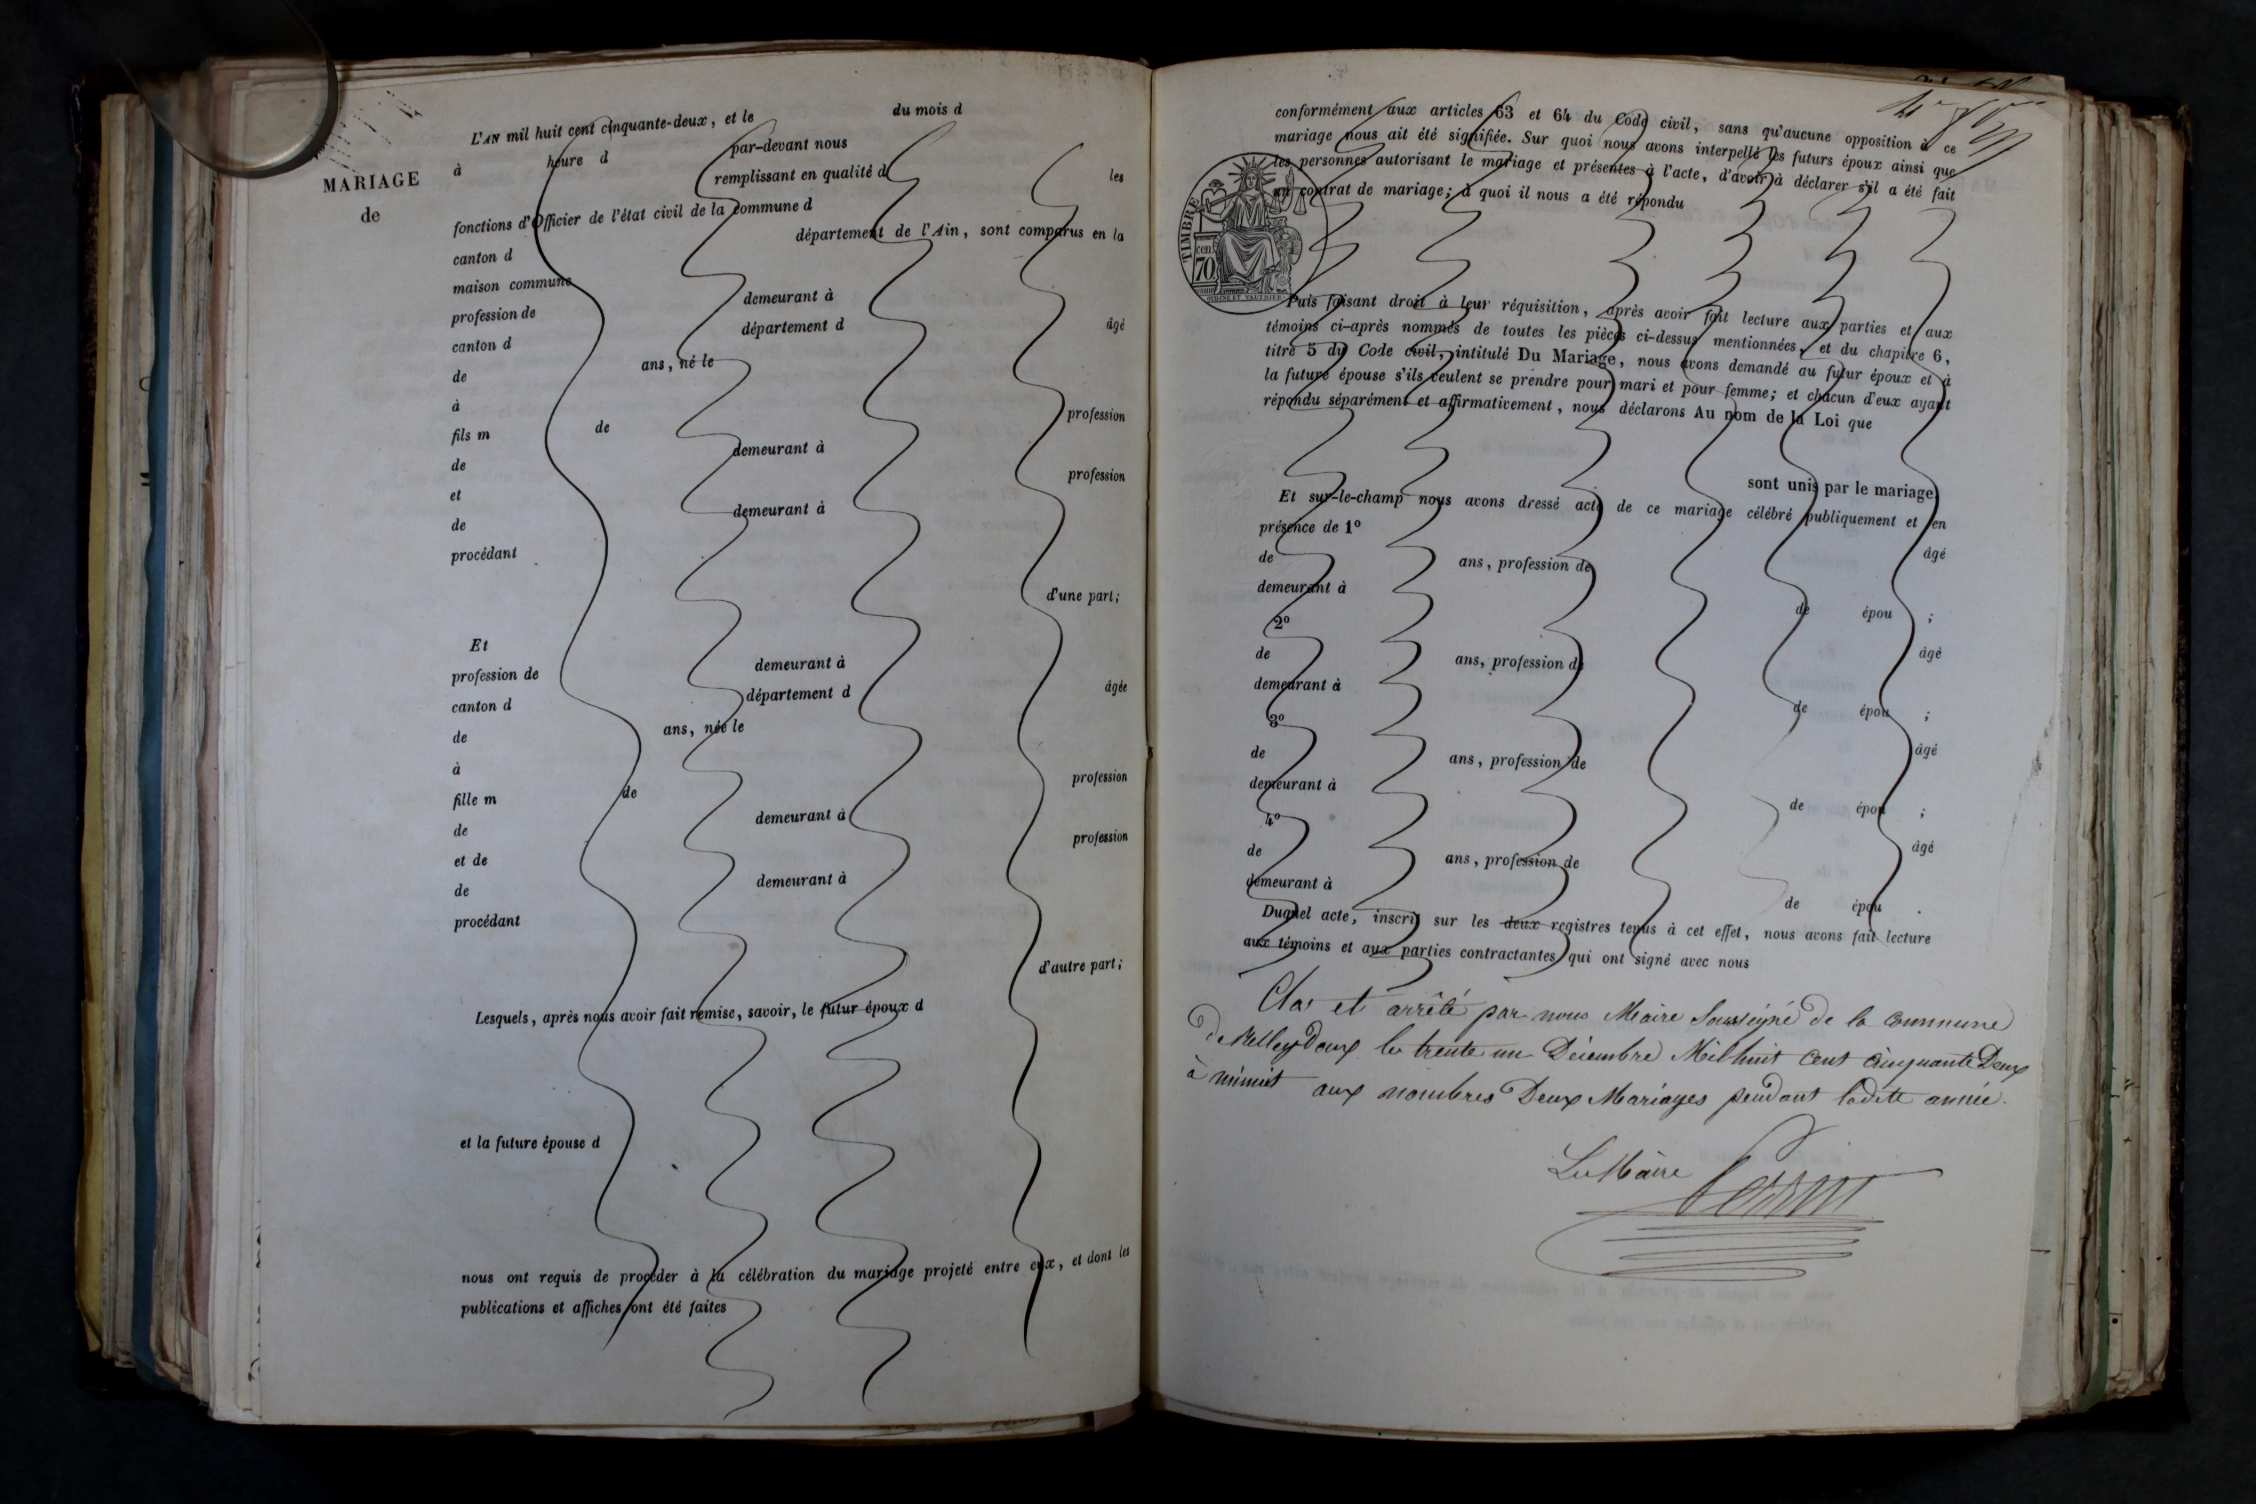 L'AN mil huit cent cinquante-deux, et le du mois d
à heure d par-devant nous
MARIAGE
de
remplissant en qualité d les
fonctions d'Officier de l'état civil de la commune d
canton d département de l'Ain, sont comparus en la
maison commune
profession de demeurant à
canton d département d âgé
de ans, né le
à
fils m de profession
de demeurant à
et profession
de demeurant à
procédant
d'une part;
Et
profession de demeurant à
canton d département d âgée
de ans, née le
à
fille m de profession
de demeurant à
et de profession
de demeurant à
procédant
d'autre part;
Lesquels, après nous avoir fait remise, savoir, le futur époux d
et la future épouse d
nous ont requis de procéder à la célébration du mariage projeté entre eux, et dont les
publications et affiches ont été faites
conformément aux articles 63 et 64 du Code civil, sans qu'aucune opposition à ce
mariage nous ait été signifiée. Sur quoi nous avons interpellé les futurs époux ainsi que
les personnes autorisant le mariage et présentes à l'acte, d'avoir à déclarer s'il a été fait
un contrat de mariage; à quoi il nous a été répondu
TIMBRE
cen.
70
Puis faisant droit à leur réquisition, après avoir fait lecture aux parties et aux
témoins ci-après nommés de toutes les pièces ci-dessus mentionnées, et du chapitre 6,
titre 5 du Code civil, intitulé Du Mariage, nous avons demandé au futur époux et à
la future épouse s'ils veulent se prendre pour mari et pour femme; et chacun d'eux ayant
répondu séparément et affirmativement, nous déclarons Au nom de la Loi que
sont unis par le mariage
Et sur-le-champ nous avons dressé acte de ce mariage célébré publiquement et en
présence de 1º
de ans, profession de âgé
demeurant à de épou ;
2º
de ans, profession de âgé
demeurant à de épou ;
3º
de ans, profession de âgé
demeurant à de épou ;
4º
de ans, profession de âgé
demeurant à de épou .
Duquel acte, inscrit sur les deux registres tenus à cet effet, nous avons fait lecture
aux témoins et aux parties contractantes qui ont signé avec nous
Clos et arrêté par nous Maire Soussigné de la commune
De Belleydoux le trente un Décembre Mil huit cent cinquante Deux
à minuit aux nombres Deux Mariages pendant ladite année.
Le Maire